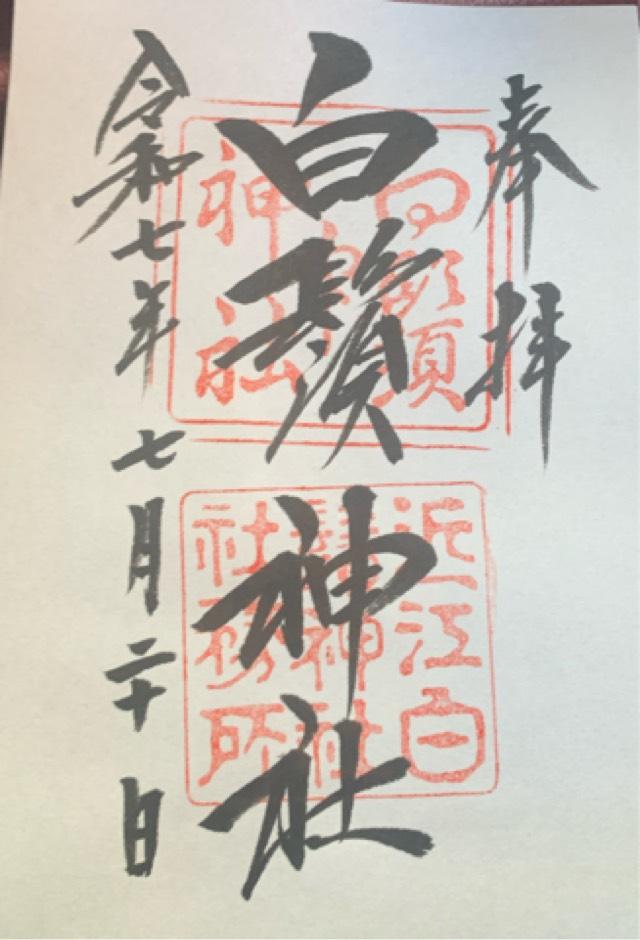 奉拝
白鬚神社
令和七年七月二十日
近江白
鬚神社
社務所